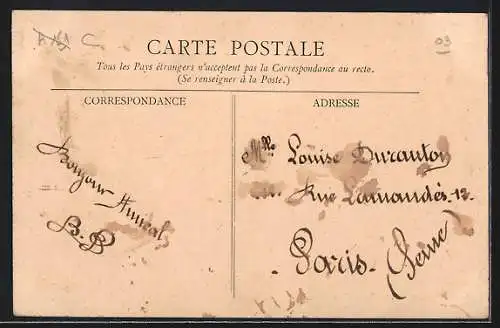 CARTE POSTALE
Tous les Pays étrangers n'acceptent pas la Correspondance au recto.
(Se renseigner à la Poste.)
CORRESPONDANCE
ADRESSE
Bonjour Amical
B.P
Mlle Louise Duranton
Rue Lamandés. 12.
Paris. (Seine)
03